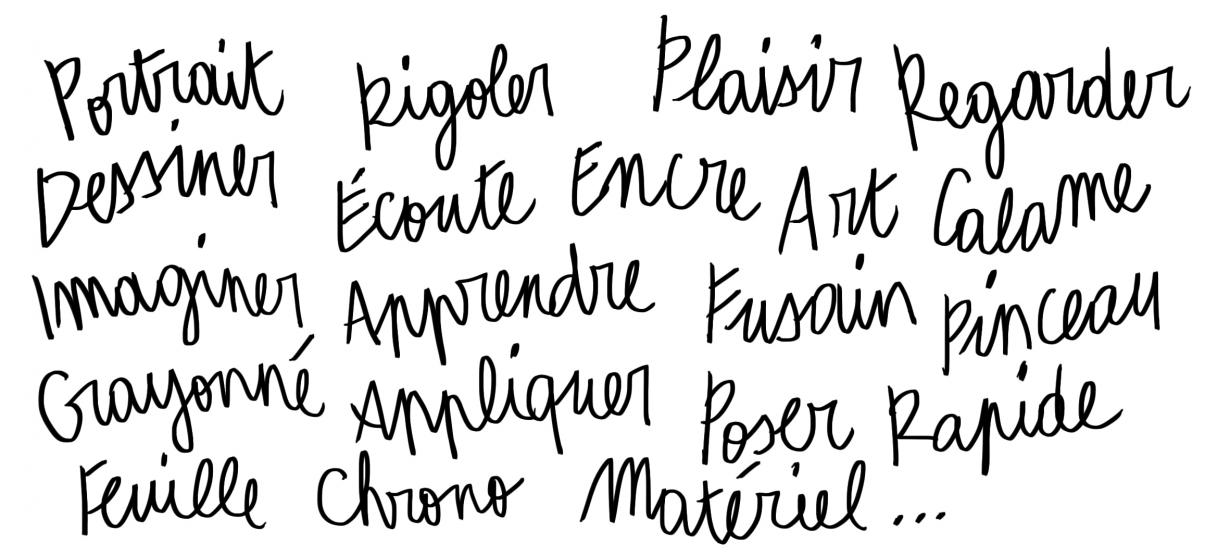 Portrait Rigoler Plaisir Regarder
Dessiner Écoute Encre Art Calame
Imaginer Apprendre Fusain Pinceau
Crayonné Appliquer Poser Rapide
Feuille Chrono Matériel...